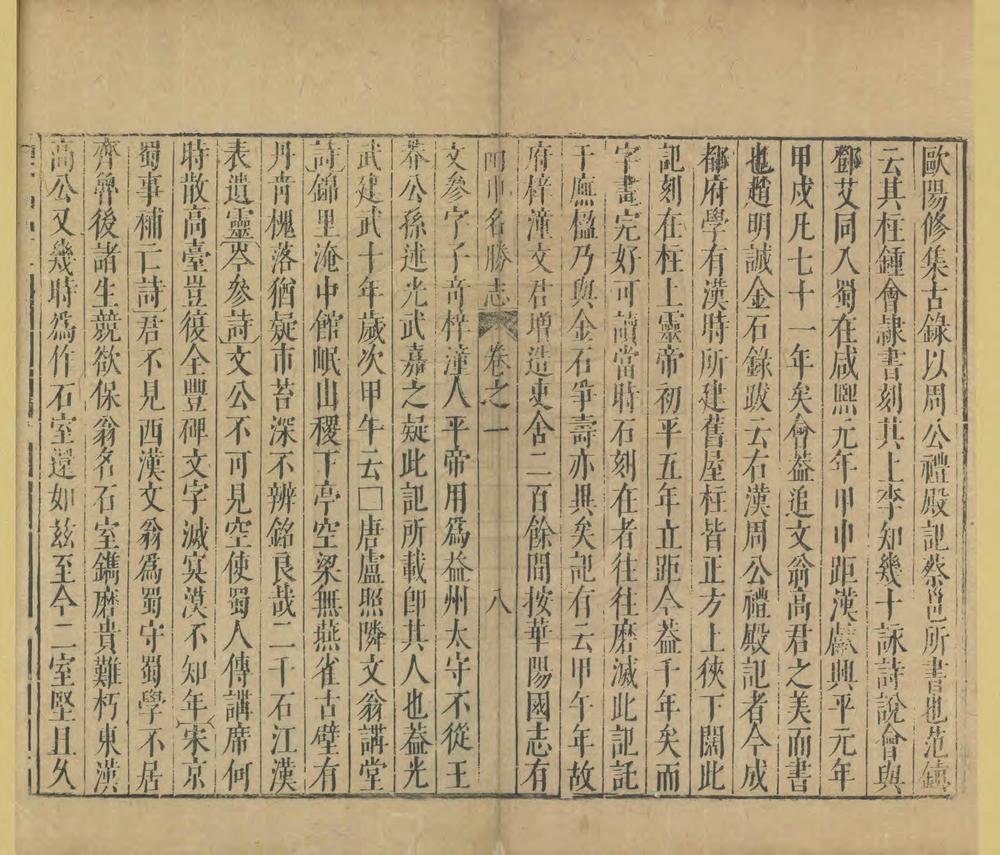 歐陽修集古錄以周公禮殿記蔡邕所書也范鎮
云其柱鍾會隷書刻其上李知幾十詠詩說會與
鄧艾同入蜀在咸熙元年甲申距漢獻興平元年
甲戌凡七十一年矣會葢追文翁高君之美而書
也趙明誠金石錄跋云右漢周公禮殿記者今成
都府學有漢時所建舊屋柱皆正方上狹下闊此
記刻在柱上靈帝初平五年立距今葢千年矣而
字畫完好可讀當時石刻在者往往磨滅此記託
于廡楹乃與金石爭壽亦異矣記有云甲午年故
府梓潼文君增造吏舍二百餘間按華陽國志有
四川名勝志 卷之一 八
文參字子奇梓潼人平帝用爲益州太守不從王
莽公孫述光武嘉之疑此記所載卽其人也葢光
武建武十年歲次甲午云□唐盧照隣文翁講堂
詩錦里淹中館岷山稷下亭空梁無燕雀古壁有
丹靑槐落猶疑市苔深不辨銘良哉二千石江漢
表遺靈岑參詩文公不可見空使蜀人傳講席何
時散高臺豈復全豐碑文字滅冥漠不知年宋京
蜀事補亡詩君不見西漢文翁爲蜀守蜀學不居
齊魯後諸生競欲保翁名石室鐫磨貴難朽東漢
高公又幾時爲作石室還如玆至今二室堅且久